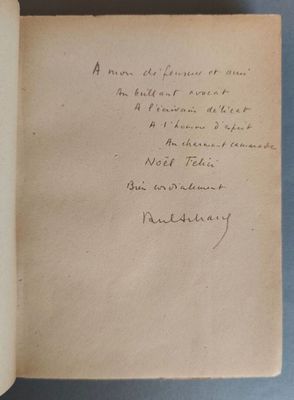 A mon défenseur et ami
Au brillant avocat
A l'écrivain délicat
A l'homme d'esprit
Au charmant camarade
Noël Felici
Bien cordialement